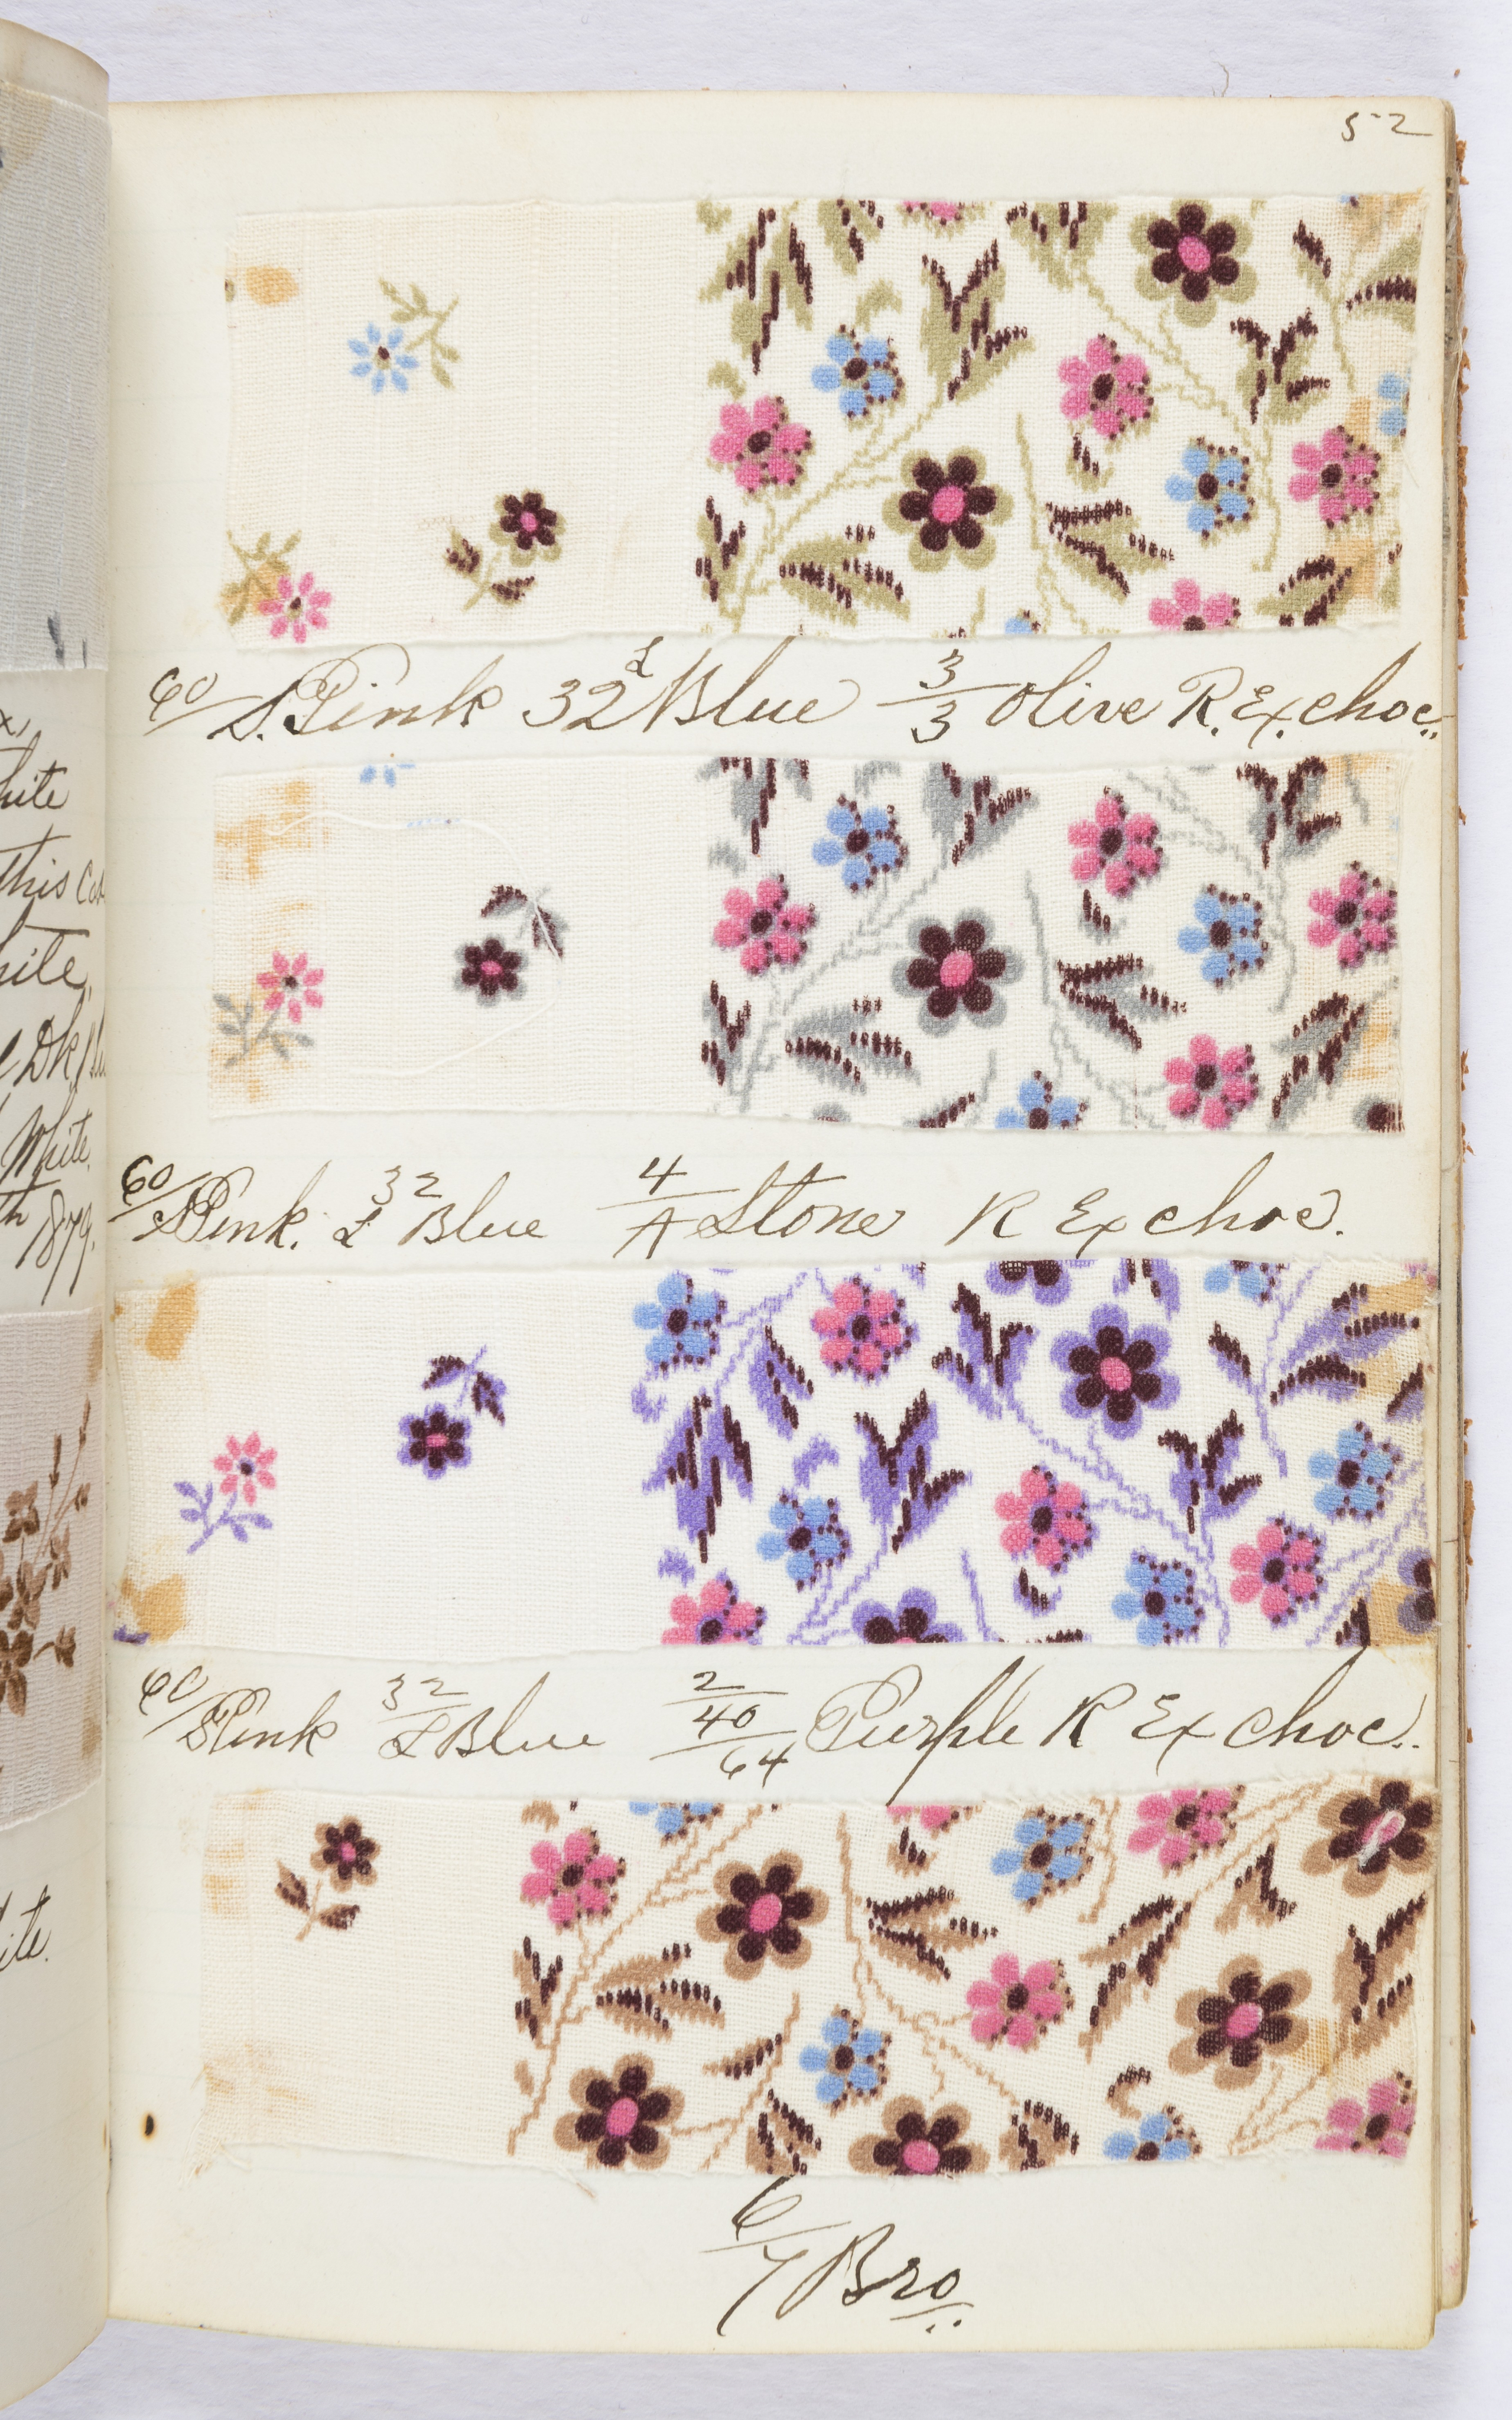 52
60/S. Pink 32/L Blue 3/3 Olive R. Ex. choc.
60/S Pink. 32/L Blue 4/A Stone R Ex choc.
60/S Pink 32/L Blue 2/40/64 Purple R Ex choc.
6/7 Bro.
x,
hite
this Col
hite,
Dk
White.
th 1879.
ite.